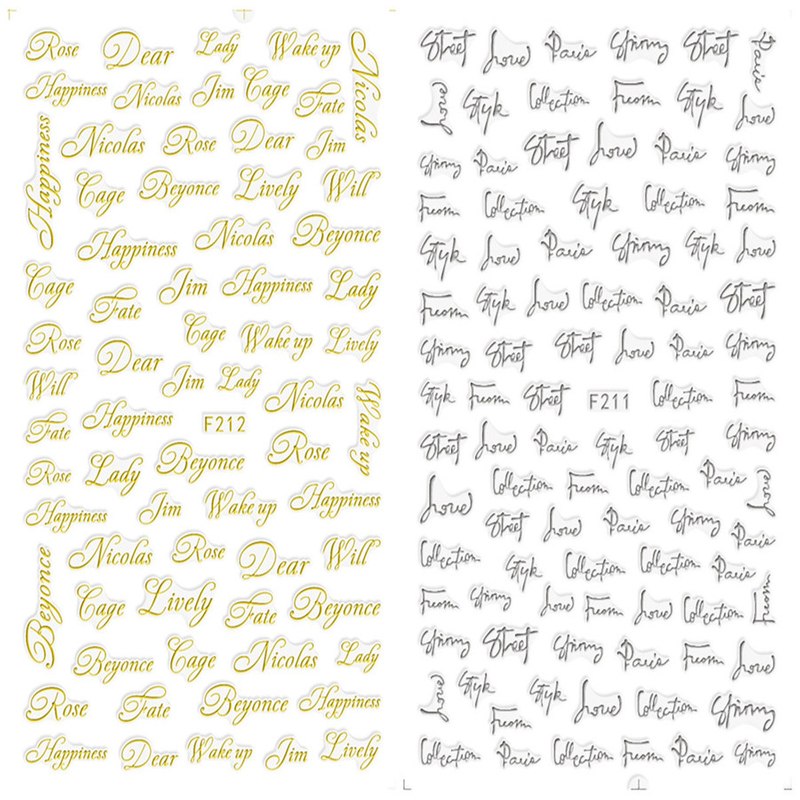 Rose Dear Lady Wake up Nicolas
Happiness Nicolas Jim Cage Fate
Happiness Nicolas Rose Dear Jim
Cage Beyonce Lively Will
Happiness Nicolas Beyonce
Cage Fate Jim Happiness Lady
Rose Dear Cage Wake up Lively
Will Jim Lady Nicolas Wake up
Fate Happiness F212 Rose
Rose Lady Beyonce
Happiness Jim Wake up Happiness
Beyonce Nicolas Rose Dear Will
Cage Lively Fate Beyonce
Beyonce Cage Nicolas Lady
Rose Fate Beyonce Happiness
Happiness Dear Wake up Jim Lively
Street Love Paris Street Paris
Love Style Collection Style Love
Paris Street Love Paris
Collection Style Collection
Style Love Paris Style Love
Style Love Collection Paris Street
Street Street Love Paris
Style Street F211 Collection
Street Love Paris Style Street
Love Collection Collection Paris Love
Street Love Paris Paris
Collection Style Collection Collection Paris
Love Love Collection
Street Paris Love
Love Style Style Love Collection
Collection Paris Collection Paris